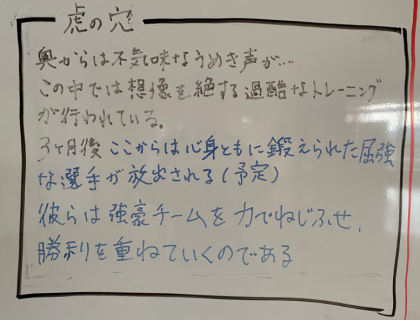 虎の穴
奥からは不気味なうめき声が…
この中では想像を絶する過酷なトレーニング
が行われている。
3ヶ月後ここからは心身ともに鍛えられた屈強
な選手が放出される(予定)
彼らは強豪チームを力でねじふせ、
勝利を重ねていくのである